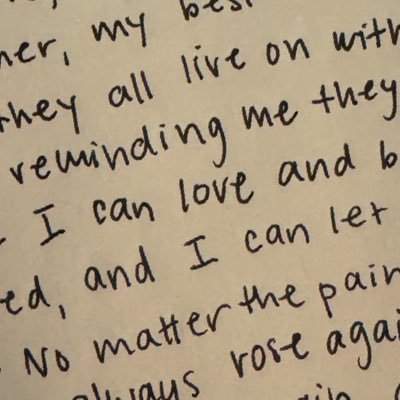 her, my best
they all live on with
reminding me they
I can love and b
ed, and I can let
No matter the pain
always rose agai